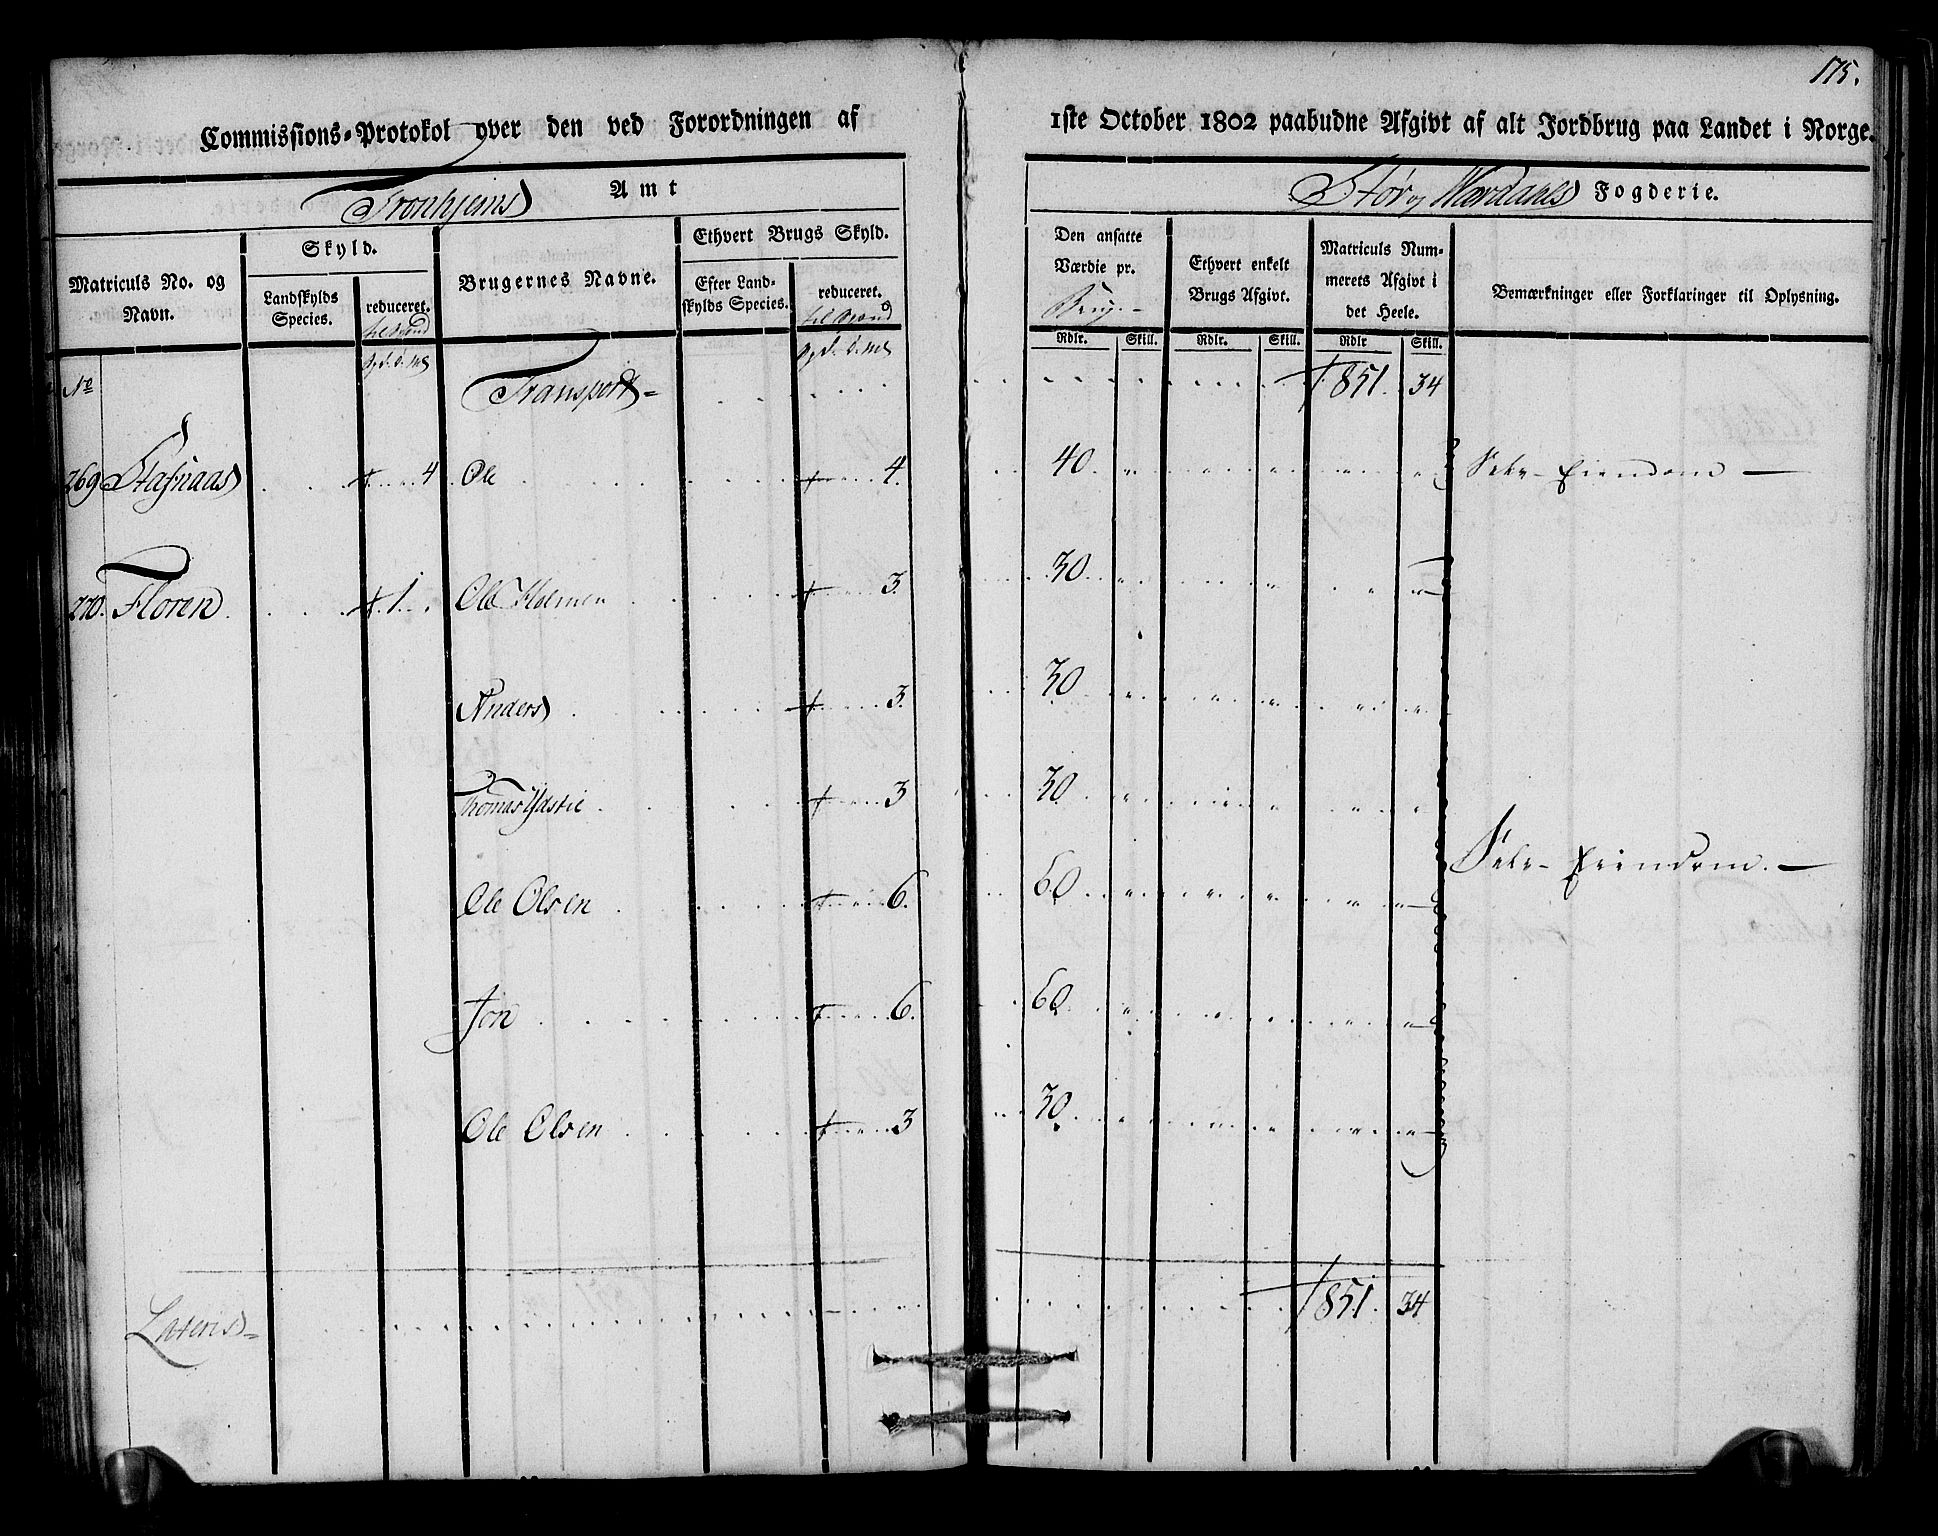 175.
Commissions-Protokol over den ved Forordningen af 1ste October 1802 paabudne Afgivt af alt Jordbrug paa Landet i Norge.
Tronhjems Amt
Stør og Værdahls Fogderie.
Matriculs No. og Navn.
Skyld.
Landskylds Species.
reduceret.
Brugernes Navne.
Ethvert Brugs Skyld.
Efter Landskylds Species.
reduceret.
Den ansatte Værdie pr. Brug.
Ethvert enkelt Brugs Afgivt.
Matriculs Nummerets Afgivt i det Heele.
Bemærkninger eller Forklaringer til Oplysning.
Rdlr. Skill. Rdlr. Skill. Rdlr Skill.
No Transport 851. 34
269 Stafnaas 4 Ole 4. 40. Selv-Eiendom
270. Floren 1. Ole Holmen 3. 30.
Anders 3. 30
Thomas Ydstie 3 30
Selv-Eiendom.
Ole Olsen 6. 60
Jon 6. 60
Ole Olsen 3 30.
Lateris 851. 34